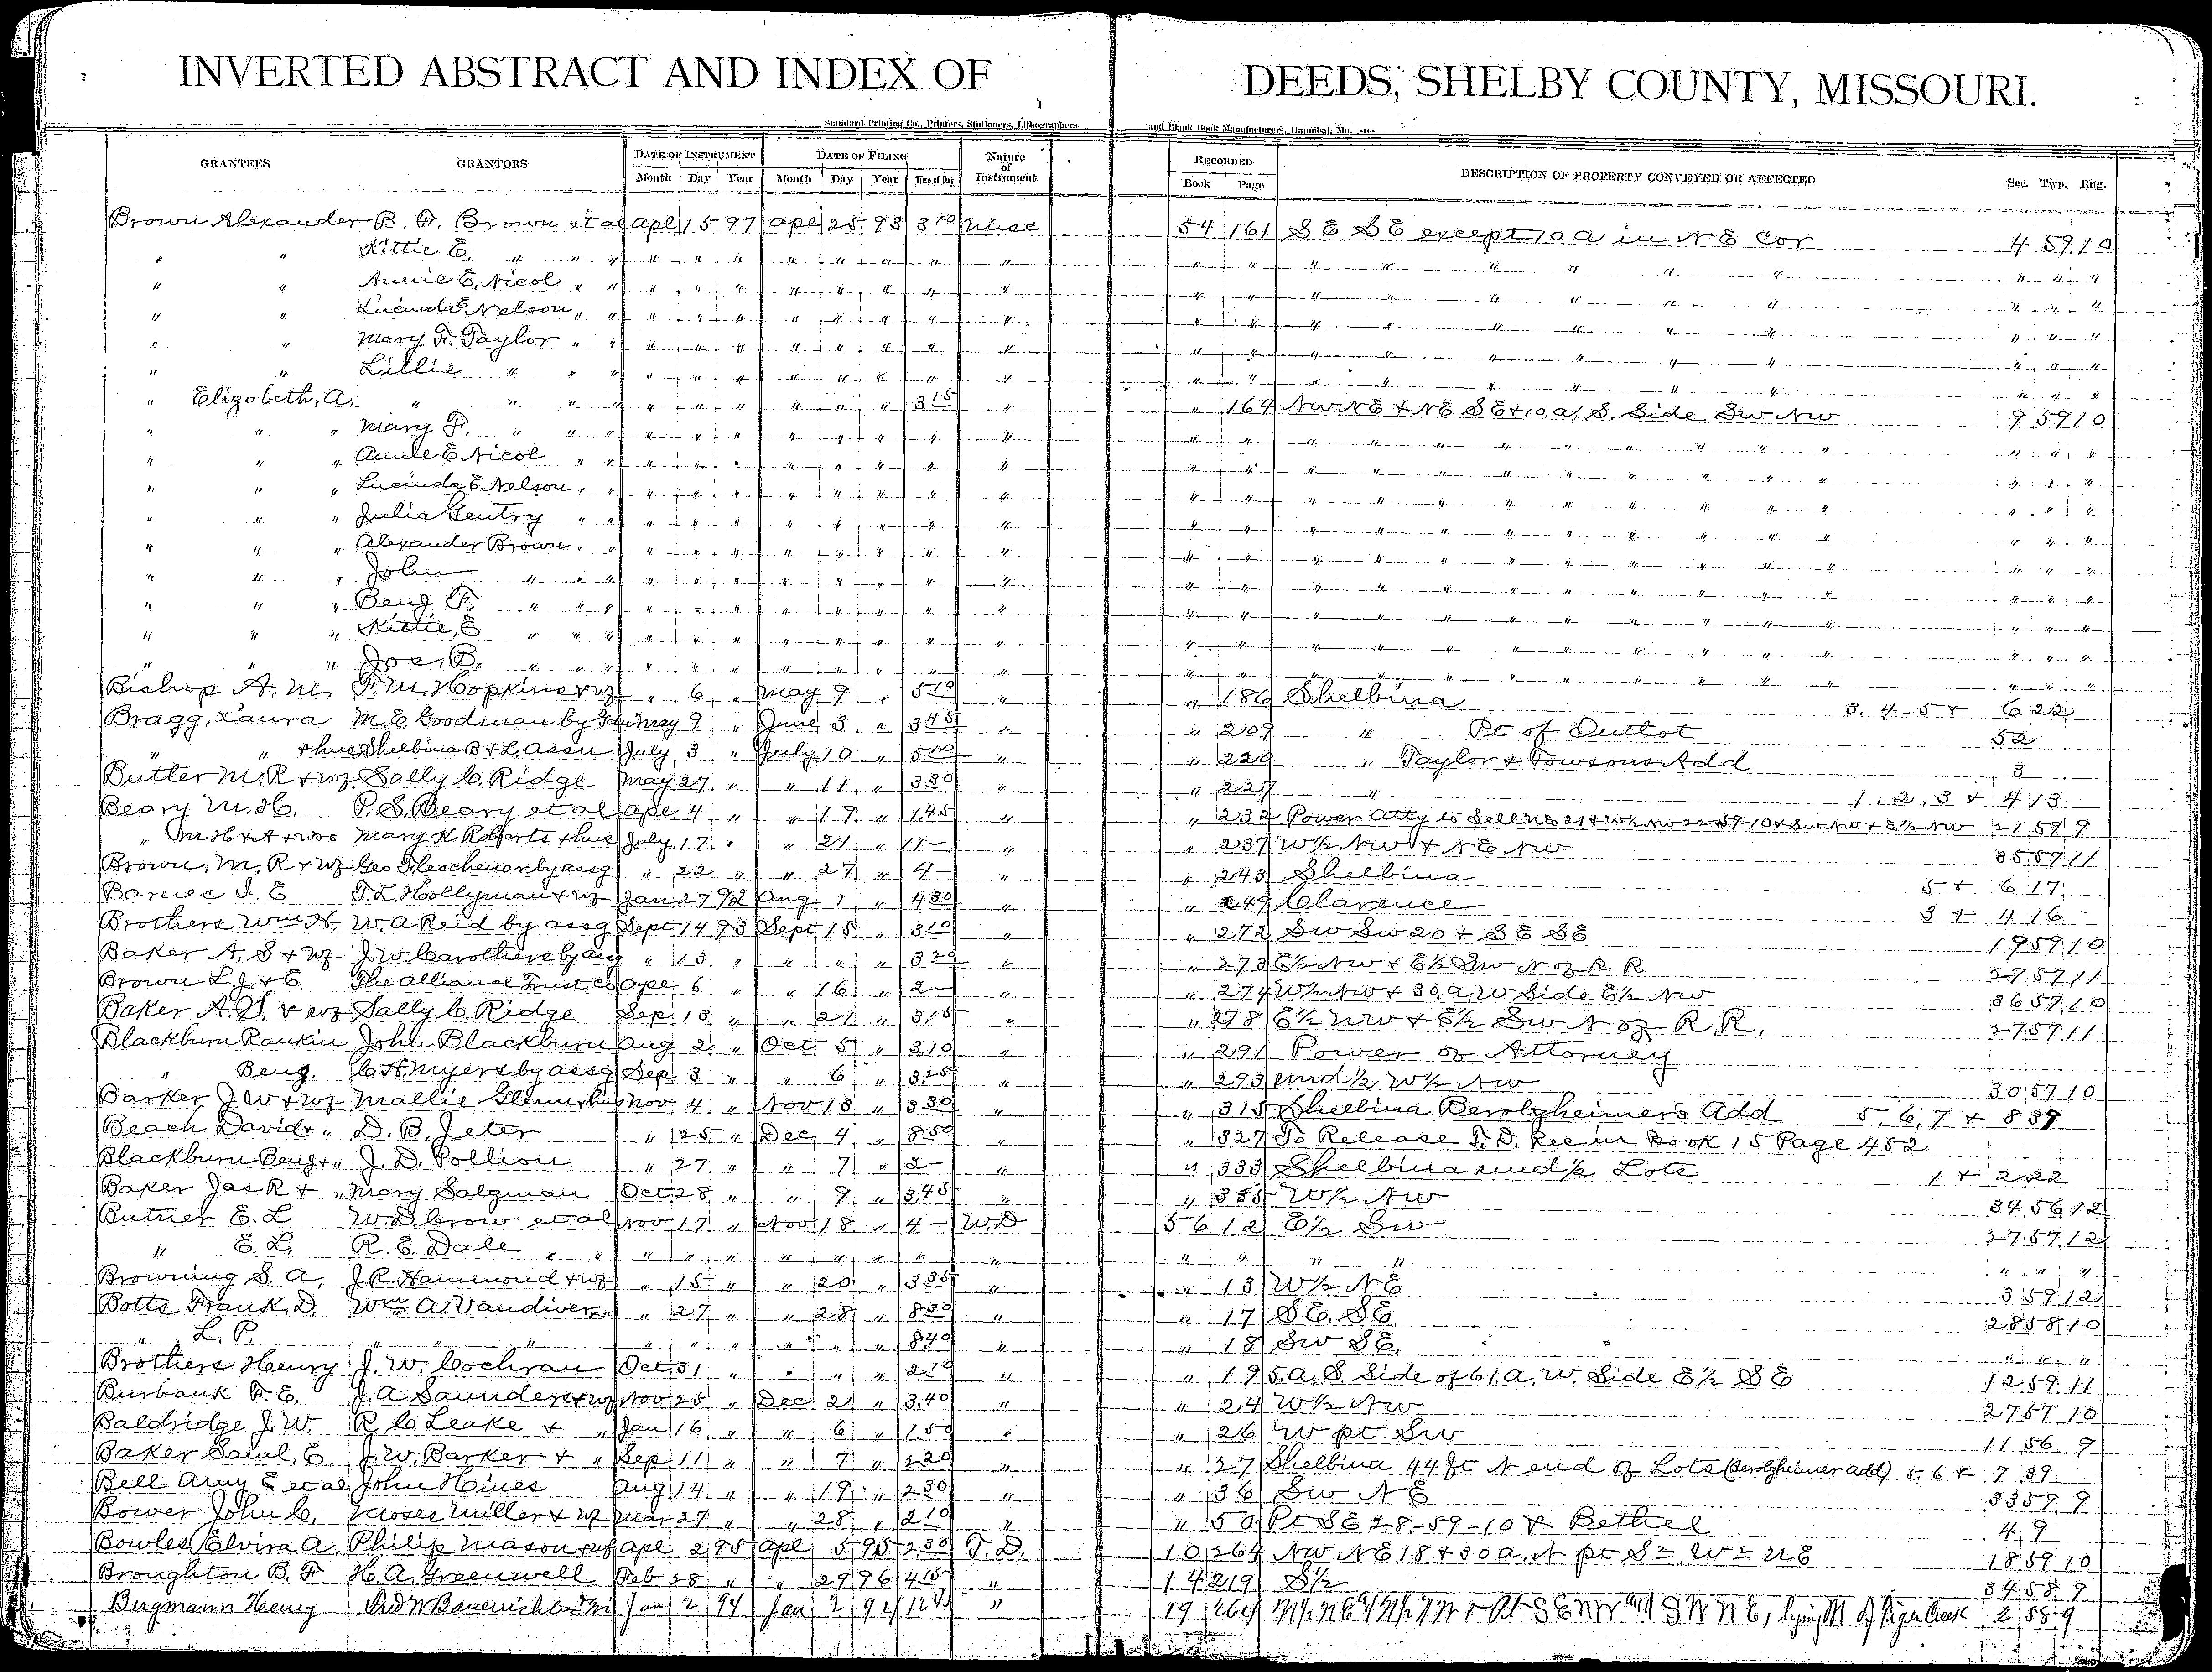 INVERTED ABSTRACT AND INDEX OF DEEDS, SHELBY COUNTY, MISSOURI.
Standard Printing Co., Printers, Stationers, Lithographers and Blank Book Manufacturers, Hannibal, Mo.
GRANTEES GRANTORS DATE OF INSTRUMENT DATE OF FILING Nature of Instrument RECORDED DESCRIPTION OF PROPERTY CONVEYED OR AFFECTED Sec. Twp. Rng.
Month Day Year Month Day Year Time of Day Book Page
Brown Alexander B. F. Brown et al Apl 15 97 Apl 25 93 3 10 Misc 54 161 S E S E except 10 a in N E Cor 4 59 10
" " Kittie E. " " " " " " " " " " " " " " " " " " " " " "
" " Annie E. Nicol " " " " " " " " " " " " " " " " " " " " "
" " Lucinda E Nelson " " " " " " " " " " " " " " " " " " " " "
" " Mary F. Taylor " " " " " " " " " " " " " " " " " " " " "
" " Lillie " " " " " " " " " " " " " " " " " " " " " "
" Elizabeth, A. " " " " " " " " " " 3 15 " " 164 NW NE + NE SE + 10 a, S. Side SW NW 9 59 10
" " " Mary F. " " " " " " " " " " " " " " " " " " " " " "
" " " Annie E Nicol " " " " " " " " " " " " " " " " " " " " "
" " " Lucinda E Nelson " " " " " " " " " " " " " " " " " " " " "
" " " Julia Gentry " " " " " " " " " " " " " " " " " " " " "
" " " Alexander Brown " " " " " " " " " " " " " " " " " " " " "
" " " John " " " " " " " " " " " " " " " " " " " " " "
" " " Benj F. " " " " " " " " " " " " " " " " " " " " " "
" " " Kittie, E " " " " " " " " " " " " " " " " " " " " " "
" " " Jos. B. " " " " " " " " " " " " " " " " " " " " " "
Bishop A. M. F. M. Hopkins + wf " 6 " May 9 " 5 10 " " 186 Shelbina 3. 4 - 5 + 6 22
Bragg, Laura M. E Goodman by May 9 " June 3 " 3 45 " " 209 " Pt of Outlot 52
" " + hus Shelbina B + L. Assn July 3 " July 10 " 5 10 " " 220 " Taylor + Towsons Add 3
Butler M. R + wf Sally C. Ridge May 27 " " 11 " 3 30 " 227 " 1. 2, 3 + 4 13
Beary M. H. P. S. Beary et al Apl 4 " " 19 " 1 45 " 232 Power Atty to Sell NE 21 + W½ NW 22-59-10 + SW NW + E½ NW 21 59 9
" M H + A + Mary K Roberts + hus July 17 " " 21 " 11 - " 237 W½ NW + NE NW 35 57 11
Brown, M, R + wf Geo by assg " 22 " " 27 " 4 - " 243 Shelbina 5 + 6 17
Barnes I. E T. L. Hollyman + wf Jan 27 92 Aug 1 " 4 30 " " 249 Clarence 3 + 4 16
Brothers Wm H. W. A Reid by assg Sept 14 93 Sept 15 " 3 10 " " 272 SW SW 20 + SE SE 19 59 10
Baker A. S + wf J. W. Carothers by assg " 13 " " " " 3 20 " " 273 E½ NW + E½ SW N of R R 27 57 11
Brown L. J. + E. The Alliance Trust Co Apl 6 " " 16 " 2 - " " 274 W½ NW + 30, a, W Side E½ NW 36 57 10
Baker A. S. + wf Sally C. Ridge Sep 13 " " 21 " 3 15 " " 278 E½ NW + E½ SW N of R. R. 27 57 11
Blackburn Rankin John Blackburn Aug 2 " Oct 5 " 3 10 " " 291 Power of Attorney
" Benj. C. H. Myers by assg Sep 3 " " 6 " 3 25 " " 293 und ½ W½ NW 30 57 10
Barker J. W + wf Mallie Glenn + hus Nov 4 " Nov 13 " 3 30 " " 315 Shelbina Berolzheimer's Add 5, 6, 7 + 8 39
Beach David + " D. B. Jeter " 25 " Dec 4 " 8 50 " " 327 To Release T. D. Rec in Book 15 Page 452
Blackburn Benj + " J. D. Pollion " 27 " " 7 " 2 - " " 333 Shelbina und ½ Lots 1 + 2 22
Baker Jas R + " Mary Salzman Oct 28 " " 9 " 3 45 " " 335 W½ NW 34 56 12
Butner E. L W. D. Crow et al Nov 17 " Nov 18 " 4 - W. D 56 12 E½ SW 27 57 12
" E. L. R. E. Dale " " " " " " " " " " " " " " " " "
Browning S. A. J. R. Hammond + wf " 15 " " 20 " 3 35 " " 13 W½ NE 3 59 12
Botts Frank, D. Wm A. Vandiver " " 27 " " 28 " 8 50 " " 17 SE. SE. 28 58 10
" L. P. " " " " " " " " " 8 40 " 18 SW SE. " " "
Brothers Henry J. W. Cochran Oct 31 " " " " 2 10 " " 19 5. a. S. Side of 61. a, W. Side E½ SE 12 59 11
Burbank F. E. J. A Saunders + wf Nov 25 " Dec 2 " 3.40 " " 24 W½ NW 27 57 10
Baldridge J. W. R C Leake + " Jan 16 " " 6 " 1 50 " " 26 W pt SW 11 56 9
Baker Saml. E. J. W. Barker + " Sep 11 " " 7 " 2 20 " " 27 Shelbina 44 ft N end of Lots (Berolzheimer add) 5. 6 + 7 39
Bell Amy E et al John Hines Aug 14 " " 19 " 2 30 " " 36 SW NE 33 59 9
Bower John C. Moses Miller + wf Mar 27 " " 28 " 2 10 " " 50 Pt SE 28-59-10 + Bethel 4 9
Bowles Elvira A. Philip Mason + wf Apl 2 95 Apl 5 95 2 30 T. D. 10 264 NW NE 18 + 30 a, N pt S½ W½ NE 18 59 10
Broughton B. F H. A. Greenwell Feb 28 " " 29 96 4 15 " 14 219 S½ 34 58 9
Bergmann Henry Jan 2 94 Jan 2 94 " 19 264 Pt SE NW and SW NE, lying N of Creek 2 58 9